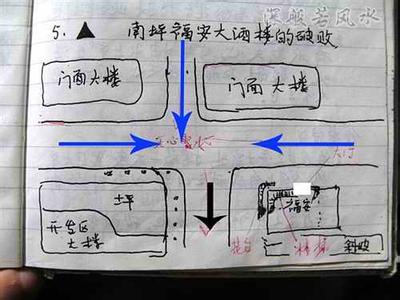 深般若风水
5. 南坪福安大酒楼的破败
门面大楼
门面大楼
大门
坪
开发区
大楼
福安
斜坡